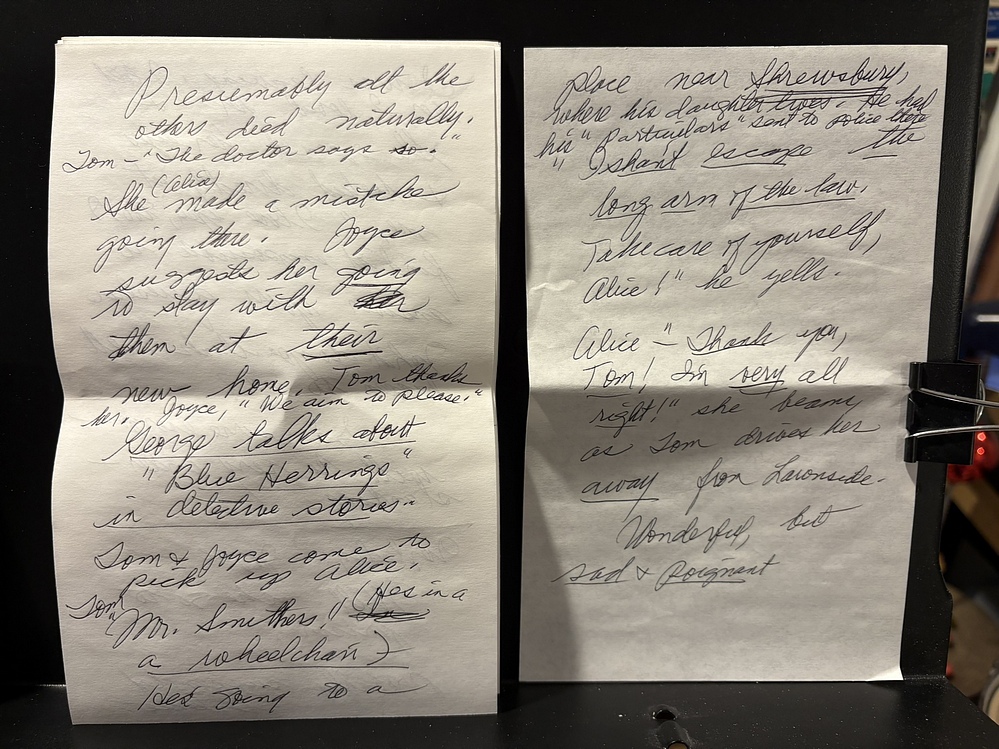 Presumably all the
others died naturally.
Tom - "The doctor says so."
(Alice)
She made a mistake
going there. Joyce
suggests her going
to stay with
them at their
new home. Tom thanks
her. Joyce, "We aim to please."
George talks about
"Blue Herrings"
in detective stories.
Tom & Joyce come to
pick up Alice.
Tom "Mr. Smithers!" (He's in a
a wheelchair)
He's going to a
place near Shrewsbury,
where his daughter lives. He had
his "particulars" sent to police there
"I shan't escape the
long arm of the law.
Take care of yourself,
Alice!" he yells.
Alice - "Thank you,
Tom! I'm very all
right!" she beams
as Tom drives her
away from Lawnside.
Wonderful, but
sad & poignant